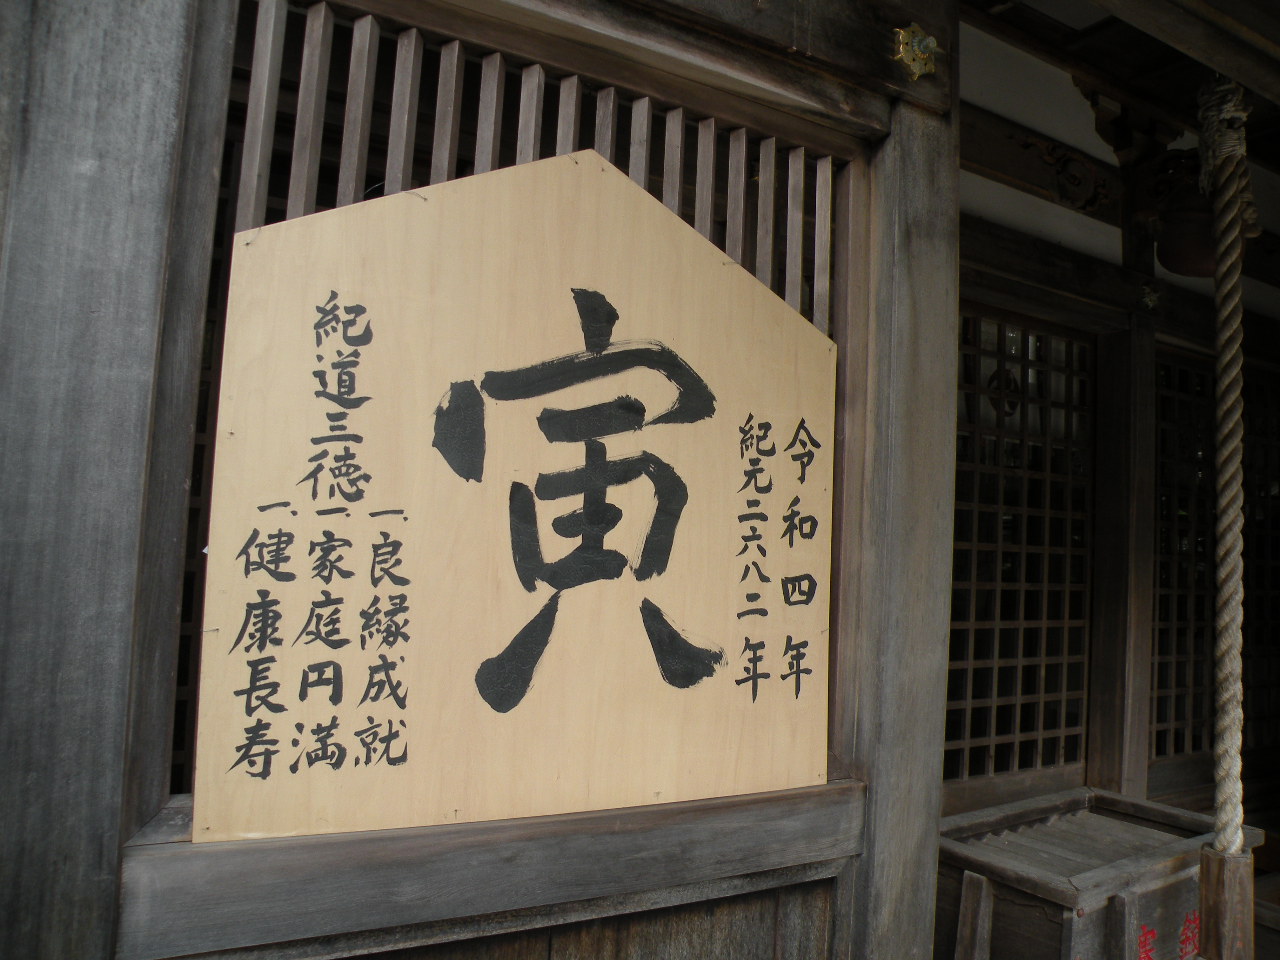 令和四年
紀元二六八二年
寅
紀道三徳
一、良縁成就
一、家庭円満
一、健康長寿